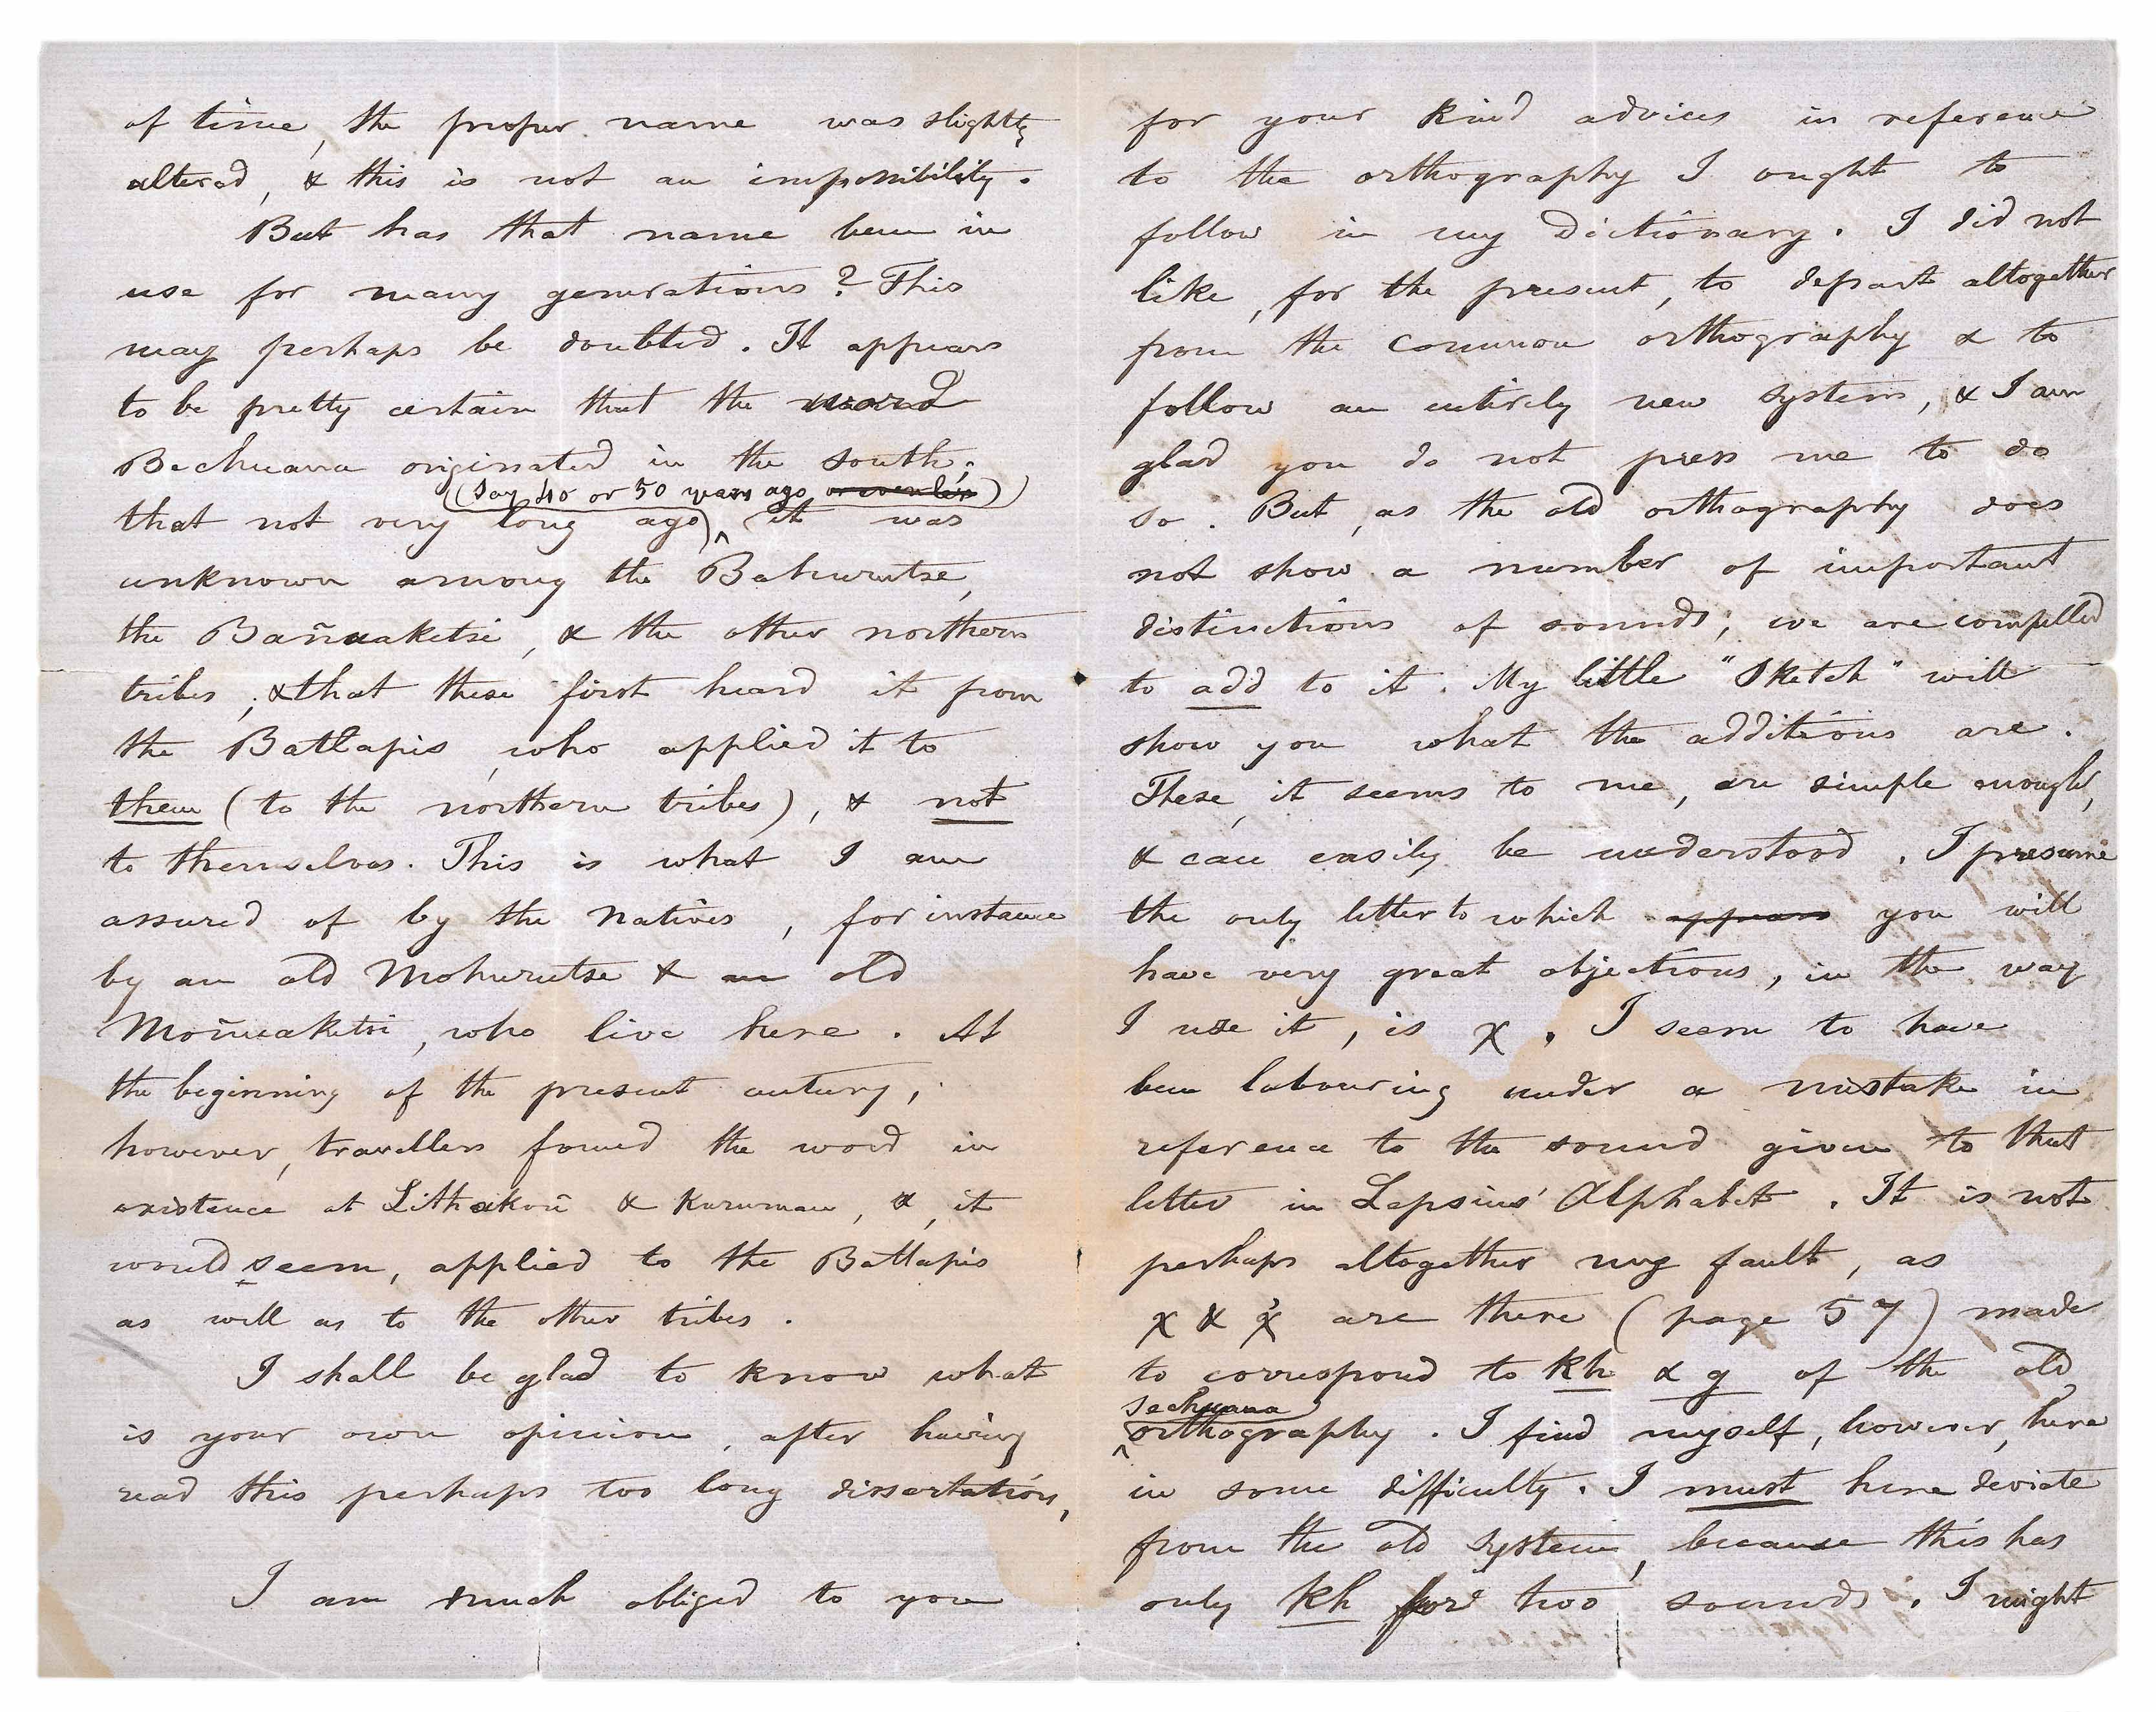 of time, the proper name was slightly
altered, & this is not an impossibility.
But has that name been in
use for many generations? This
may perhaps be doubted. It appears
to be pretty certain that the word
Bechuana originated in the south;
(say 40 or 50 years ago or even less)
that not very long ago, it was
unknown among the Bahurutse,
the Bañuaketsi, & the other northern
tribes; & that these first heard it from
the Batlapis, who applied it to
them (to the northern tribes), & not
to themselves. This is what I am
assured of by the Natives, for instance
by an old Mohurutse & an old
Moñuaketsi, who live here. At
the beginning of the present century,
however, travellers found the word in
existence at Lithakoñ & Kuruman, &, it
would seem, applied to the Batlapis
as well as to the other tribes.
I shall be glad to know what
is your own opinion, after having
read this perhaps too long dissertation,
I am much obliged to you
for your kind advices in reference
to the orthography I ought to
follow in my Dictionary. I did not
like, for the present, to depart altogether
from the common orthography & to
follow an entirely new system, & I am
glad you do not press me to do
so. But, as the old orthography does
not show a number of important
distinctions of sounds; we are compelled
to add to it. My little "Sketch" will
show you what the additions are.
These, it seems to me, are simple enough,
& can easily be understood. I presume
the only letter to which appears you will
have very great objections, in the way
I use it, is χ. I seem to have
been labouring under a mistake in
reference to the sound given to that
letter in Lepsius' Alphabet. It is not
perhaps altogether my fault, as
χ & χ̓ are there (page 57) made
to correspond to kh & g of the old
Sechuana
orthography. I find myself, however, here
in some difficulty. I must here deviate
from the old system, because this has
only kh for two sounds. I might